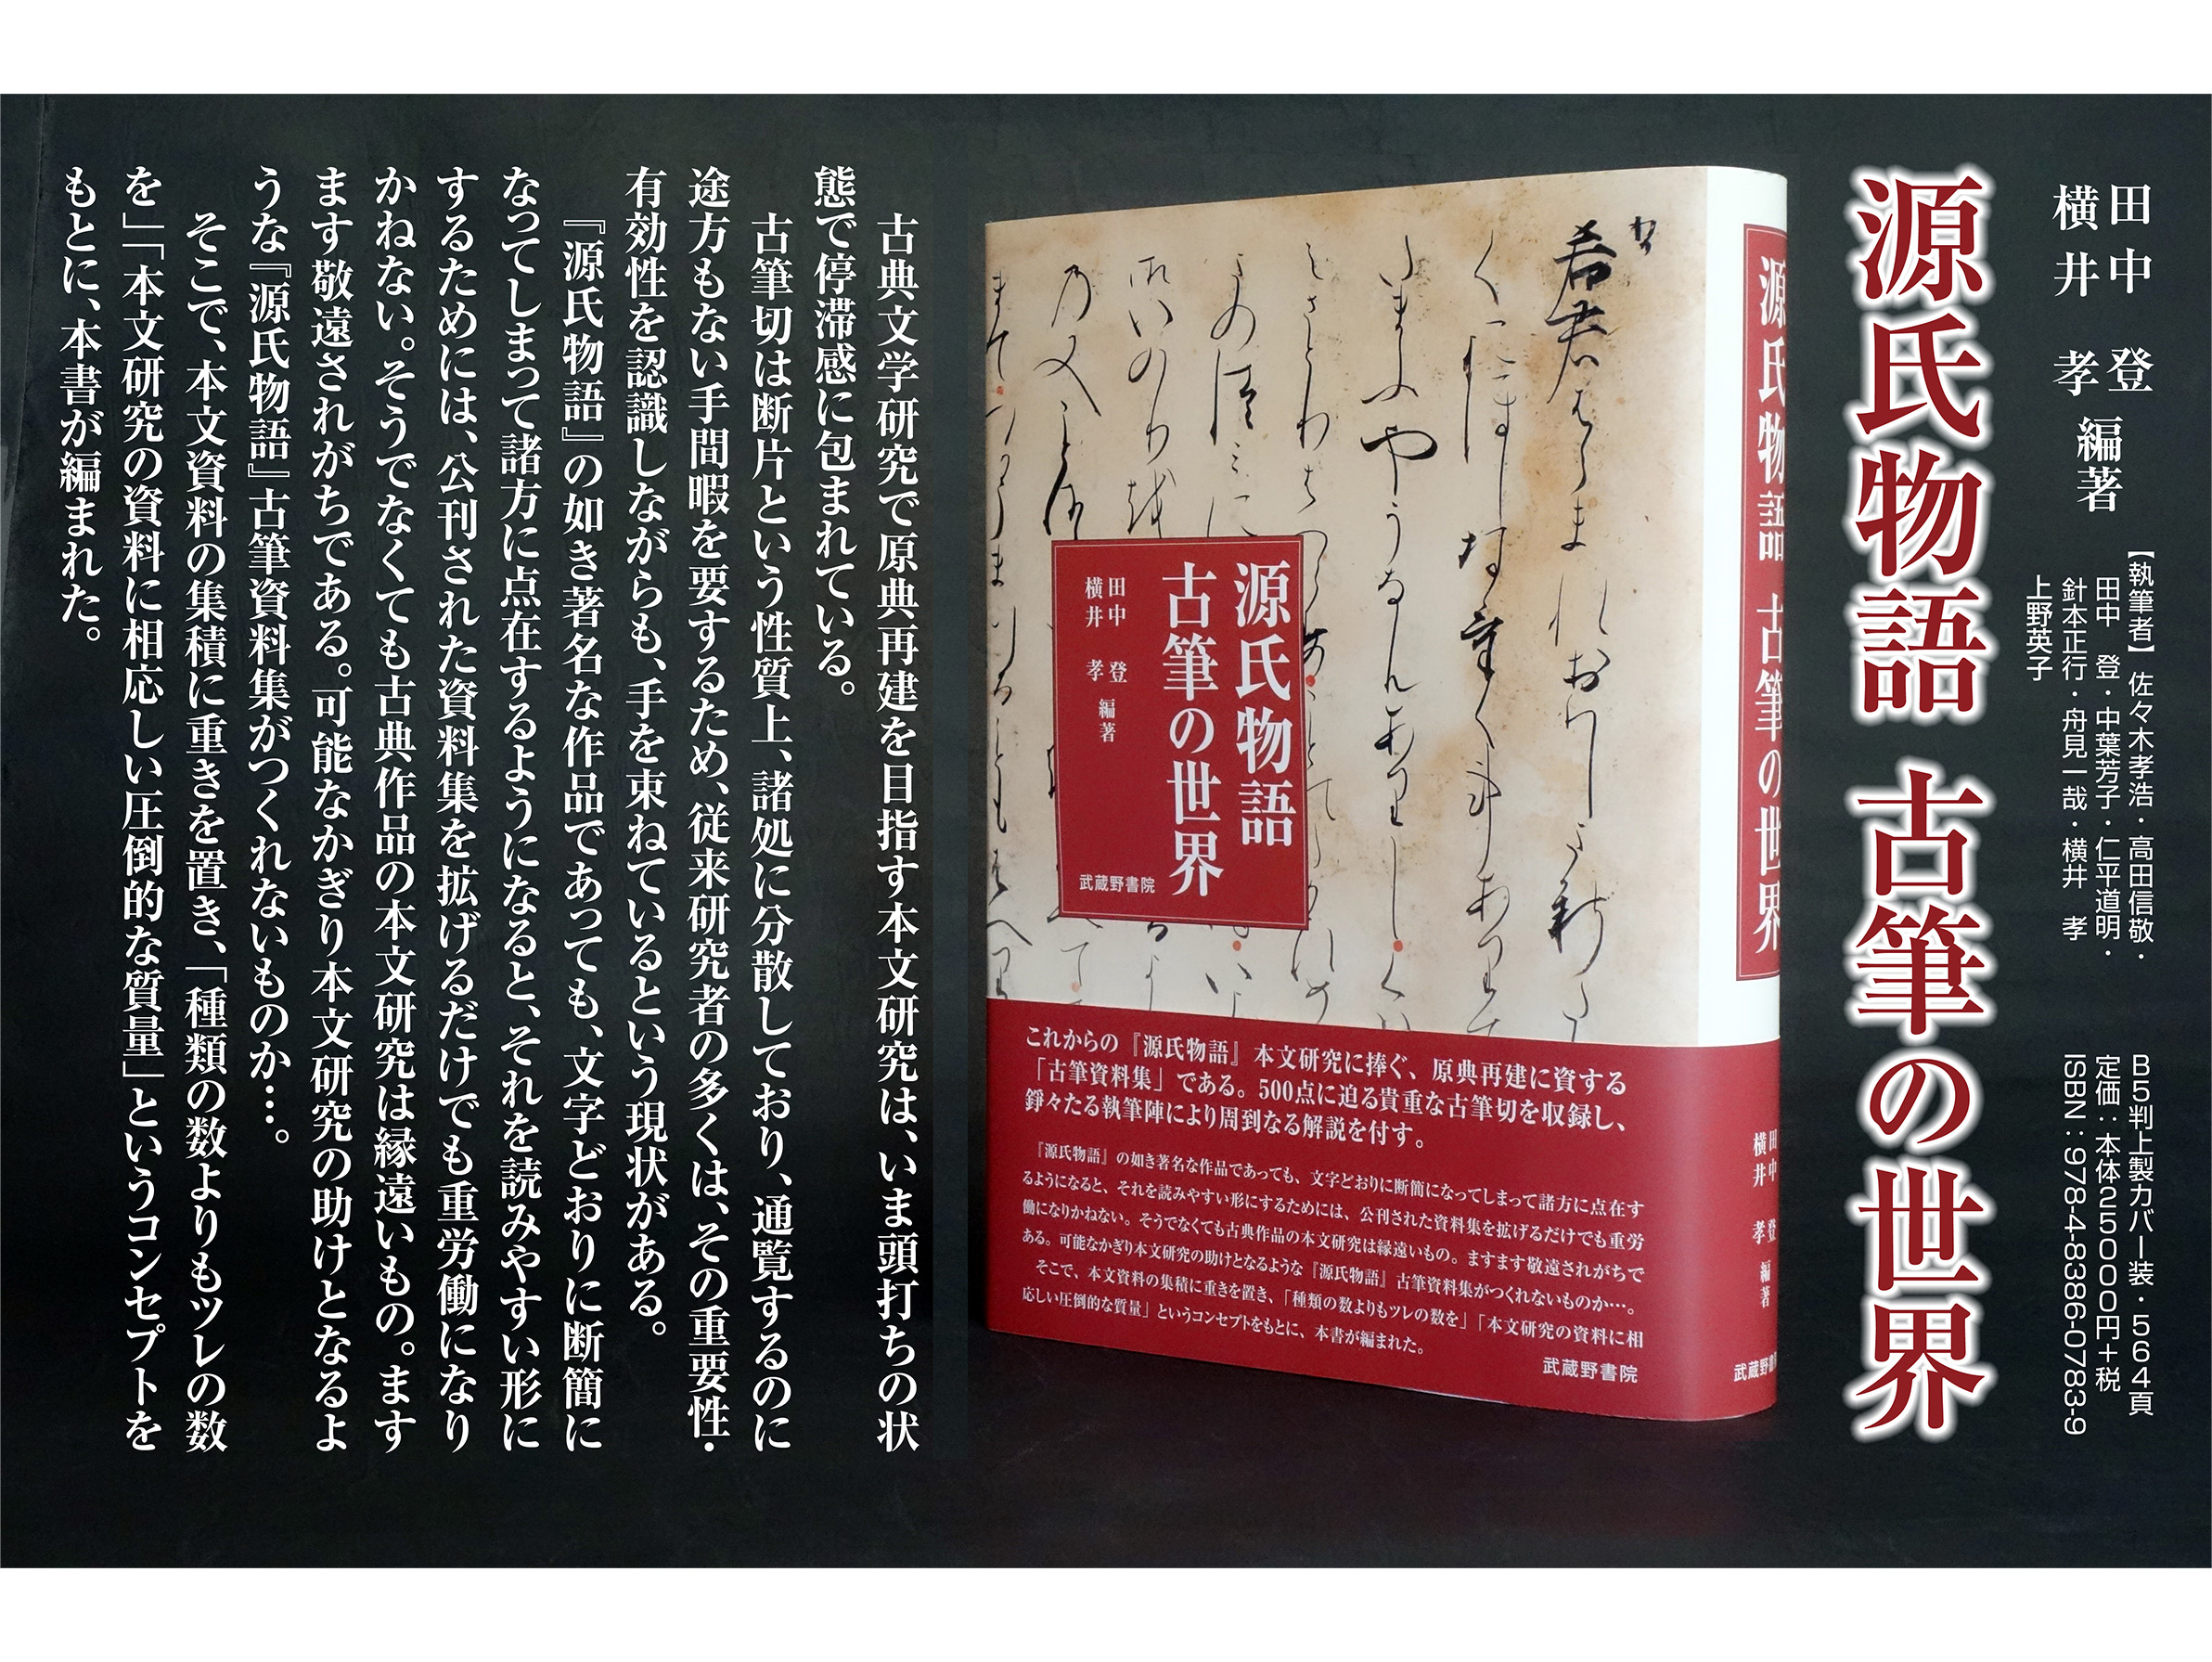 田中　登
横井　孝
編著
【執筆者】佐々木孝浩・高田信敬・
田中　登・中葉芳子・仁平道明・
針本正行・舟見一哉・横井　孝
上野英子
B5判上製カバー装・564頁
定価：本体25000円＋税
ISBN：978-4-8386-0783-9
源氏物語 古筆の世界
源氏物語 古筆の世界
田中　登
横井　孝
編著
武蔵野書院
源氏物語
古筆の世界
田中　登
横井　孝
編著
武蔵野書院
これからの『源氏物語』本文研究に捧ぐ、原典再建に資する
「古筆資料集」である。500点に迫る貴重な古筆切を収録し、
錚々たる執筆陣により周到なる解説を付す。
『源氏物語』の如き著名な作品であっても、文字どおりに断簡になってしまって諸方に点在す
るようになると、それを読みやすい形にするためには、公刊された資料集を拡げるだけでも重労
働になりかねない。そうでなくても古典作品の本文研究は縁遠いもの。ますます敬遠されがちで
ある。可能なかぎり本文研究の助けとなるような『源氏物語』古筆資料集がつくれないものか…。
そこで、本文資料の集積に重きを置き、「種類の数よりもツレの数を」「本文研究の資料に相
応しい圧倒的な質量」というコンセプトをもとに、本書が編まれた。
武蔵野書院
古典文学研究で原典再建を目指す本文研究は、いま頭打ちの状
態で停滞感に包まれている。
古筆切は断片という性質上、諸処に分散しており、通覧するのに
途方もない手間暇を要するため、従来研究者の多くは、その重要性・
有効性を認識しながらも、手を束ねているという現状がある。
『源氏物語』の如き著名な作品であっても、文字どおりに断簡に
なってしまって諸方に点在するようになると、それを読みやすい形に
するためには、公刊された資料集を拡げるだけでも重労働になり
かねない。そうでなくても古典作品の本文研究は縁遠いもの。ます
ます敬遠されがちである。可能なかぎり本文研究の助けとなるよ
うな『源氏物語』古筆資料集がつくれないものか…。
そこで、本文資料の集積に重きを置き、「種類の数よりもツレの数
を」「本文研究の資料に相応しい圧倒的な質量」というコンセプトを
もとに、本書が編まれた。